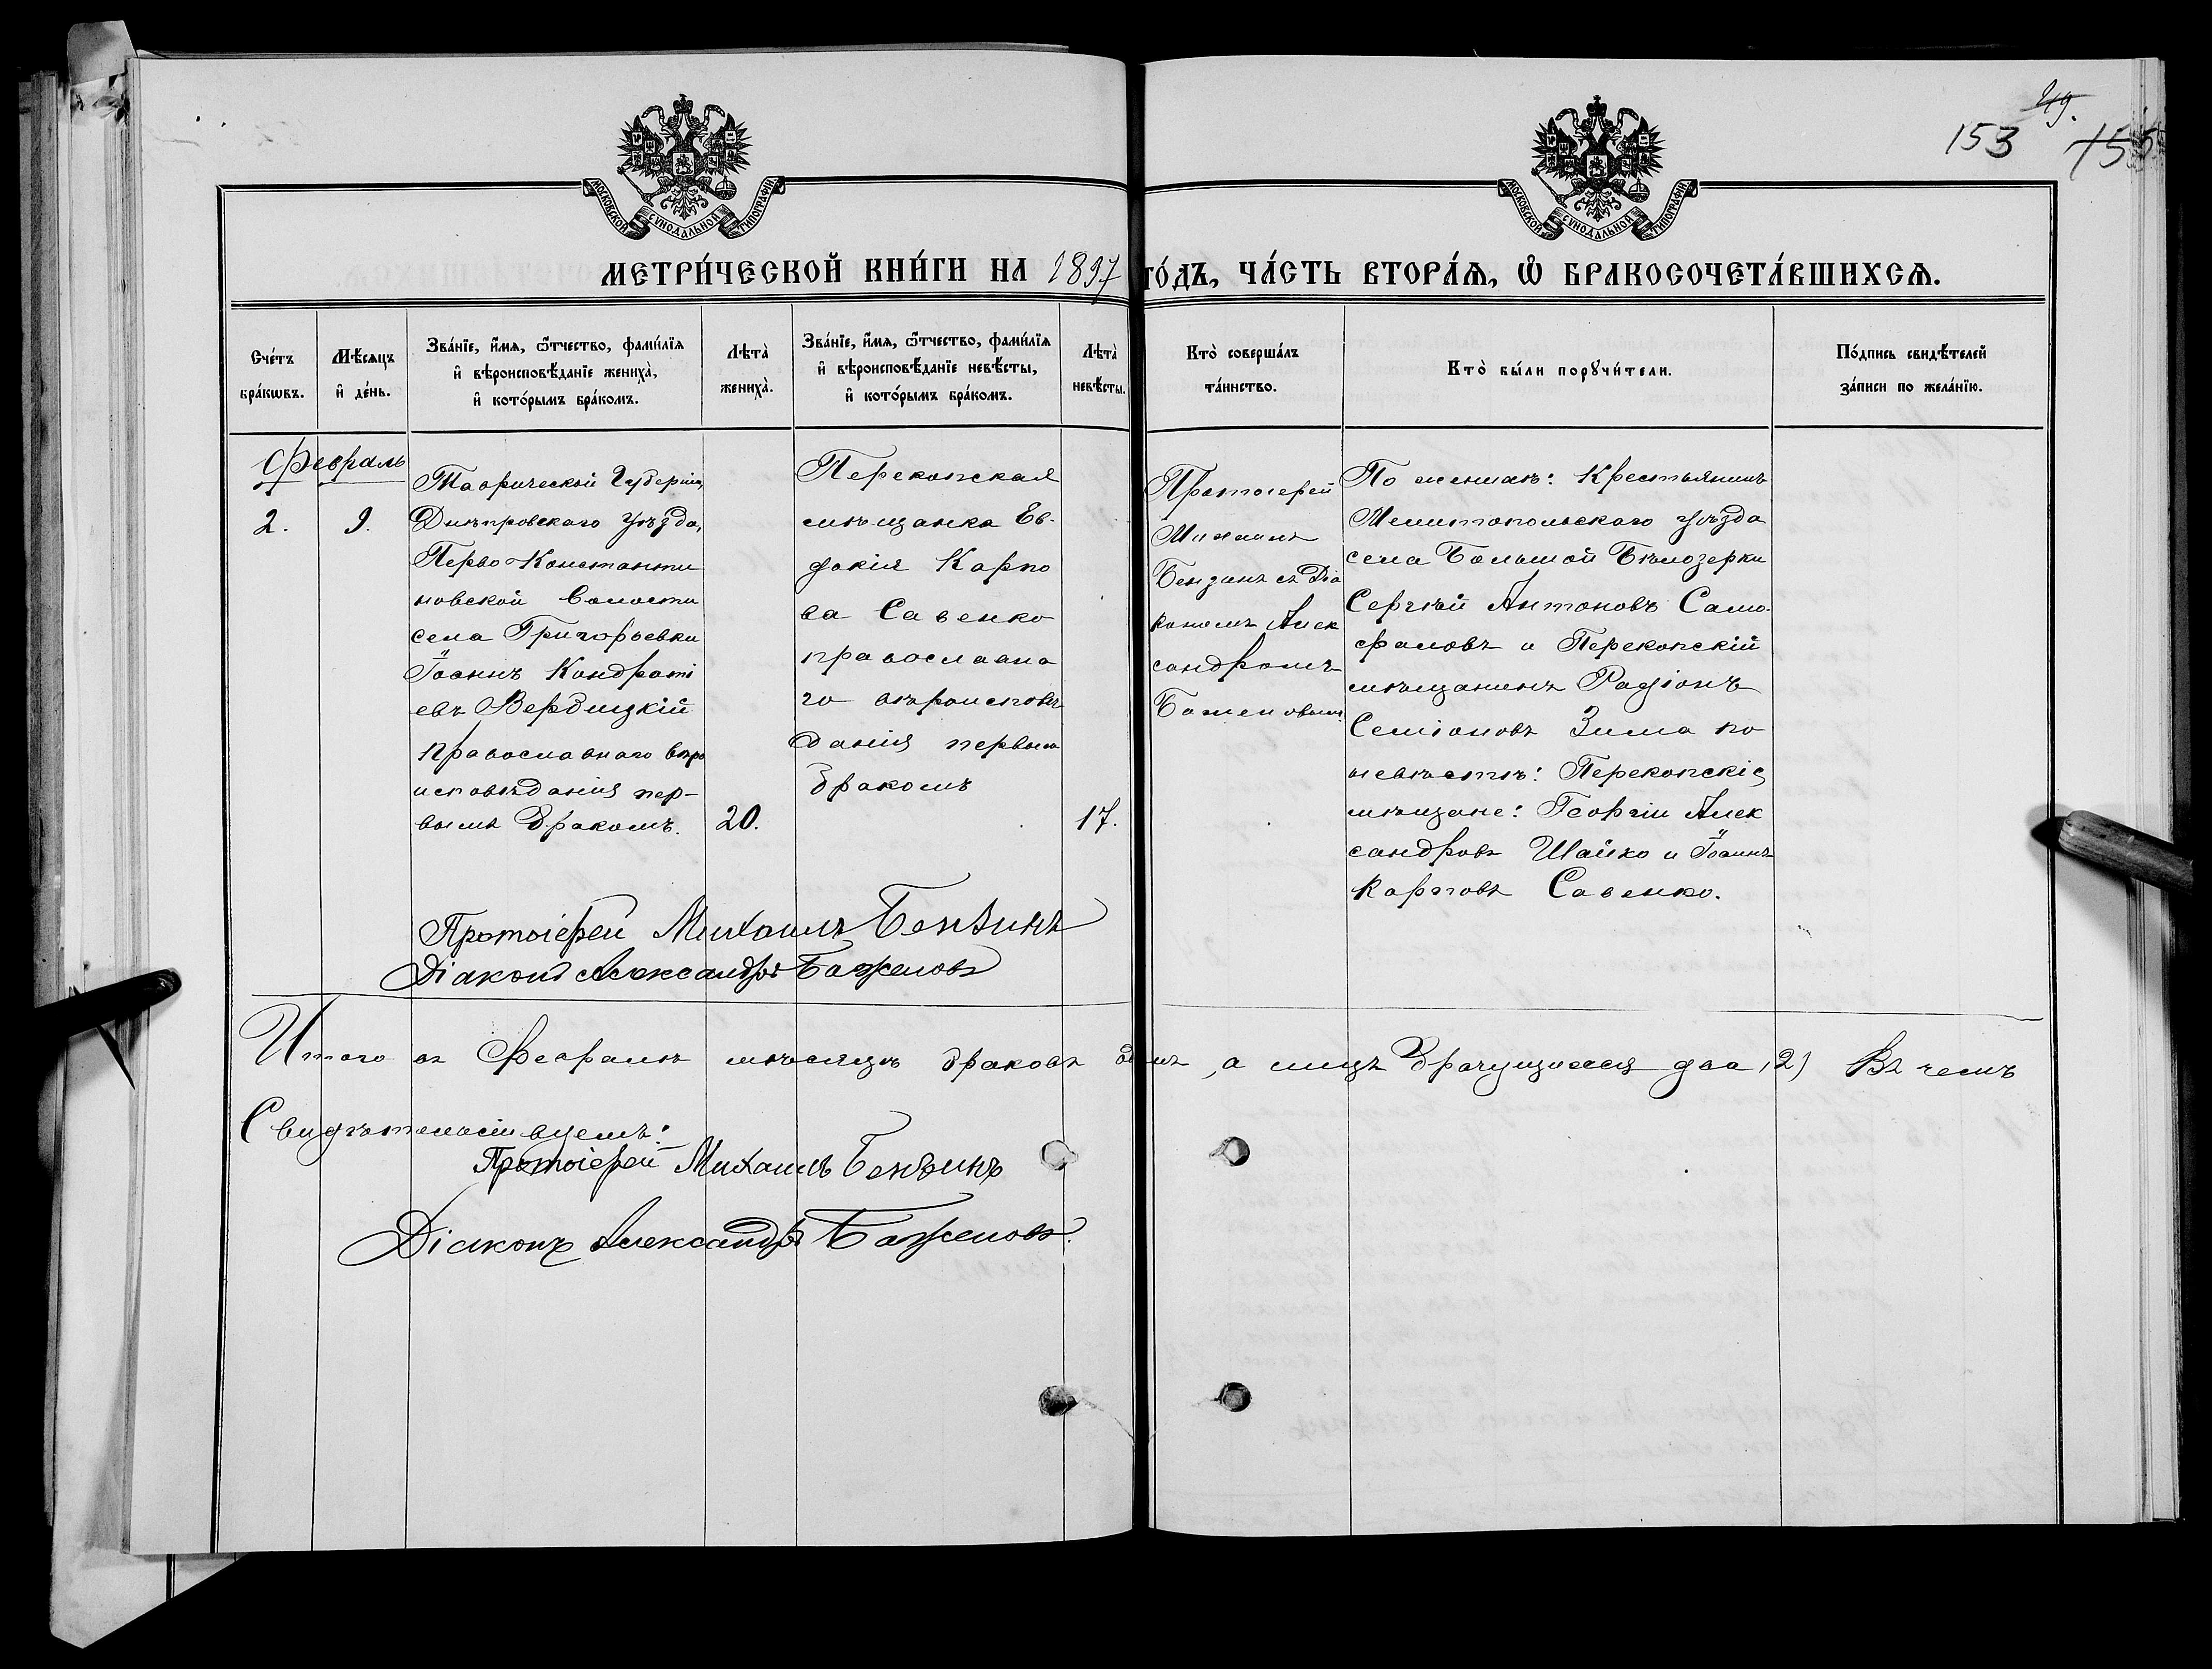 49.
153 155
МОСКОВСКОЙ СѴНОДАЛЬНОЙ ТИПОГРАФІИ.
МОСКОВСКОЙ СѴНОДАЛЬНОЙ ТИПОГРАФІИ.
МЕТРИ́ЧЕСКОЙ КНИ́ГИ НА 1897 ГО́ДЪ, ЧА́СТЬ ВТОРА́Ѧ, Ѽ БРАКОСОЧЕТА́ВШИХСѦ.
Сче́тъ
бра́кѡвъ.
Мѣ́сяцъ
и҆ де́нь.
Зва́нїе, и҆́мя, ѻ҆́тчество, фами́лїя
и҆ вѣроисповѣ́данїе жениха̀,
и҆ кото́рымъ бра́комъ.
Лѣта̀
жениха̀.
Зва́нїе, и҆́мя, ѻ҆́тчество, фами́лїя
и҆ вѣроисповѣ́данїе невѣ́сты,
и҆ кото́рымъ бра́комъ.
Лѣта̀
невѣ́сты.
Кто̀ соверша́лъ
та́инство.
Кто̀ бы́ли порꙋчи́тели.
По́дпись свидѣ́телей
за́писи по жела́нїю.
Февраль
2.
9.
Таврической Губерніи,
Днѣпровскаго Уѣзда,
Перво-Константи
новской Волости
села Григорьевки
Іоаннъ Кондраті
евъ Вердицкій
православнаго вѣро
исповѣданія пер-
вымъ бракомъ.
20.
Перекопская
мѣщанка Ев-
докія Карпо
ва Савенко
православна
го вѣроисповѣ
данія первым
бракомъ
17.
Протоіерей
Михаилъ
Бензинъ съ Діа
кономъ Алек
сандромъ
Баженовымъ
По женихѣ: Крестьянинъ
Мелитопольскаго уѣзда
села Большой Бѣлозерки
Сергѣй Антоновъ Само-
фаловъ и Перекопскій
мѣщанинъ Радіонъ
Семіоновъ Зима по
невѣстѣ: Перекопскіе
мѣщане: Георгіи Алек
сандровъ Шайко и Іоаннъ
Карповъ Савенко.
Протоіерей Михаилъ Бензинъ
Діаконъ Александръ Баженовъ
Итого въ Февралѣ мѣсяцѣ браковъ , а лицъ брачущихся два (2) Въ чемъ
Свидѣтельствуемъ:
Протоіерей Михаилъ Бензинъ
Діаконъ Александръ Баженовъ.